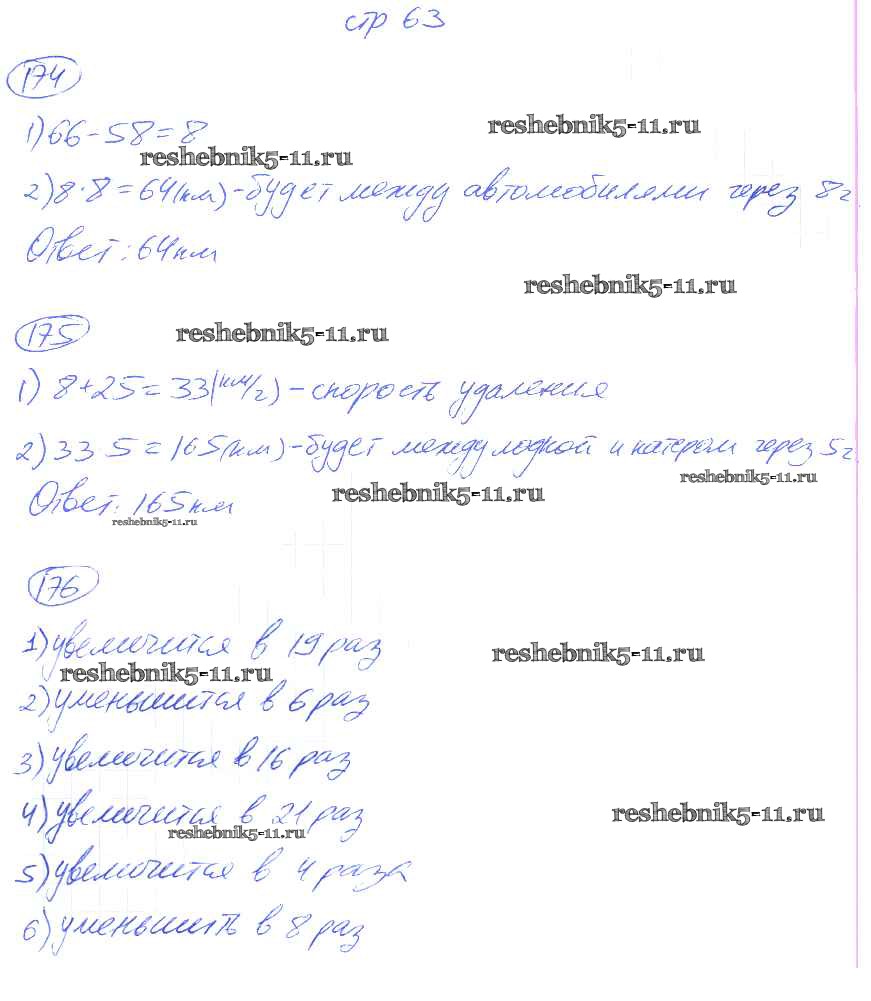 стр 63
174
1) 66 - 58 = 8
reshebnik5-11.ru
reshebnik5-11.ru
2) 8 · 8 = 64 (км) - будет между автомобилями через 8 ч
Ответ: 64 км
reshebnik5-11.ru
175
reshebnik5-11.ru
1) 8 + 25 = 33 (км/ч) - скорость удаления
2) 33 5 = 165 (км) - будет между лодкой и катером через 5 ч
reshebnik5-11.ru
Ответ: 165 км
reshebnik5-11.ru
reshebnik5-11.ru
176
1) увеличится в 19 раз
reshebnik5-11.ru
reshebnik5-11.ru
2) уменьшится в 6 раз
3) увеличится в 16 раз
4) увеличится в 21 раз
reshebnik5-11.ru
reshebnik5-11.ru
5) увеличится в 4 раза
6) уменьшить в 8 раз